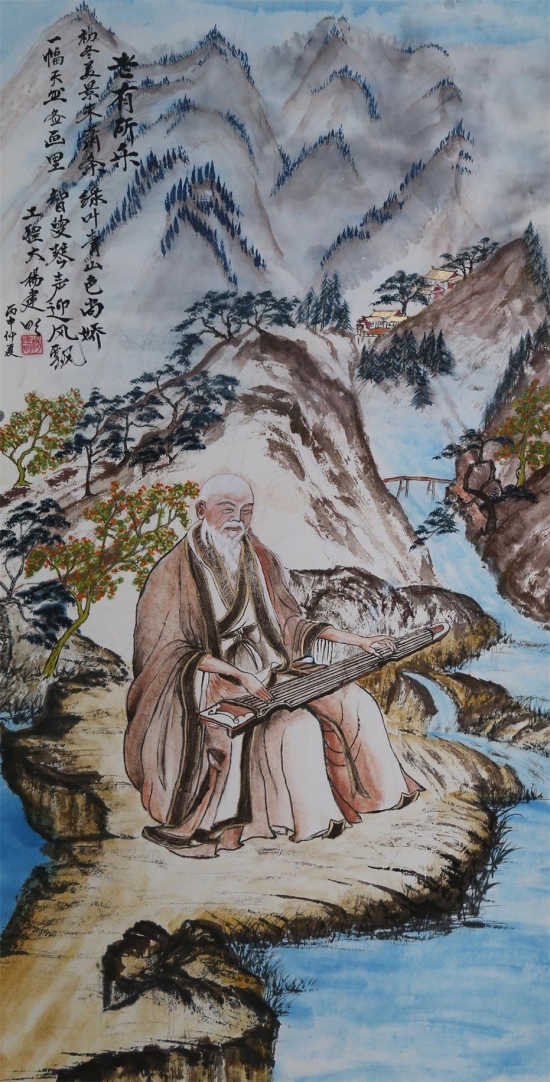 老有所乐
初冬美景未萧条绿叶青山色尚娇
一幅天然在画里 智叟琴声迎风飘
工程大杨建明
丙申仲夏